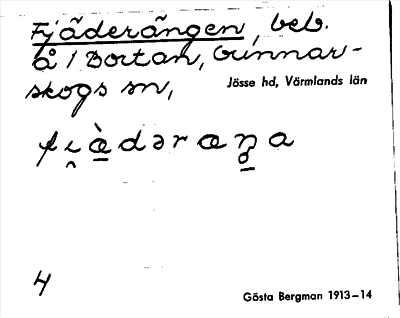 Fjäderängen, beb.
å / Bortan, Gunnar-
skogs sn,
Jösse hd, Värmlands län
fi̯æ̀dəræŋa
4
Gösta Bergman 1913–14